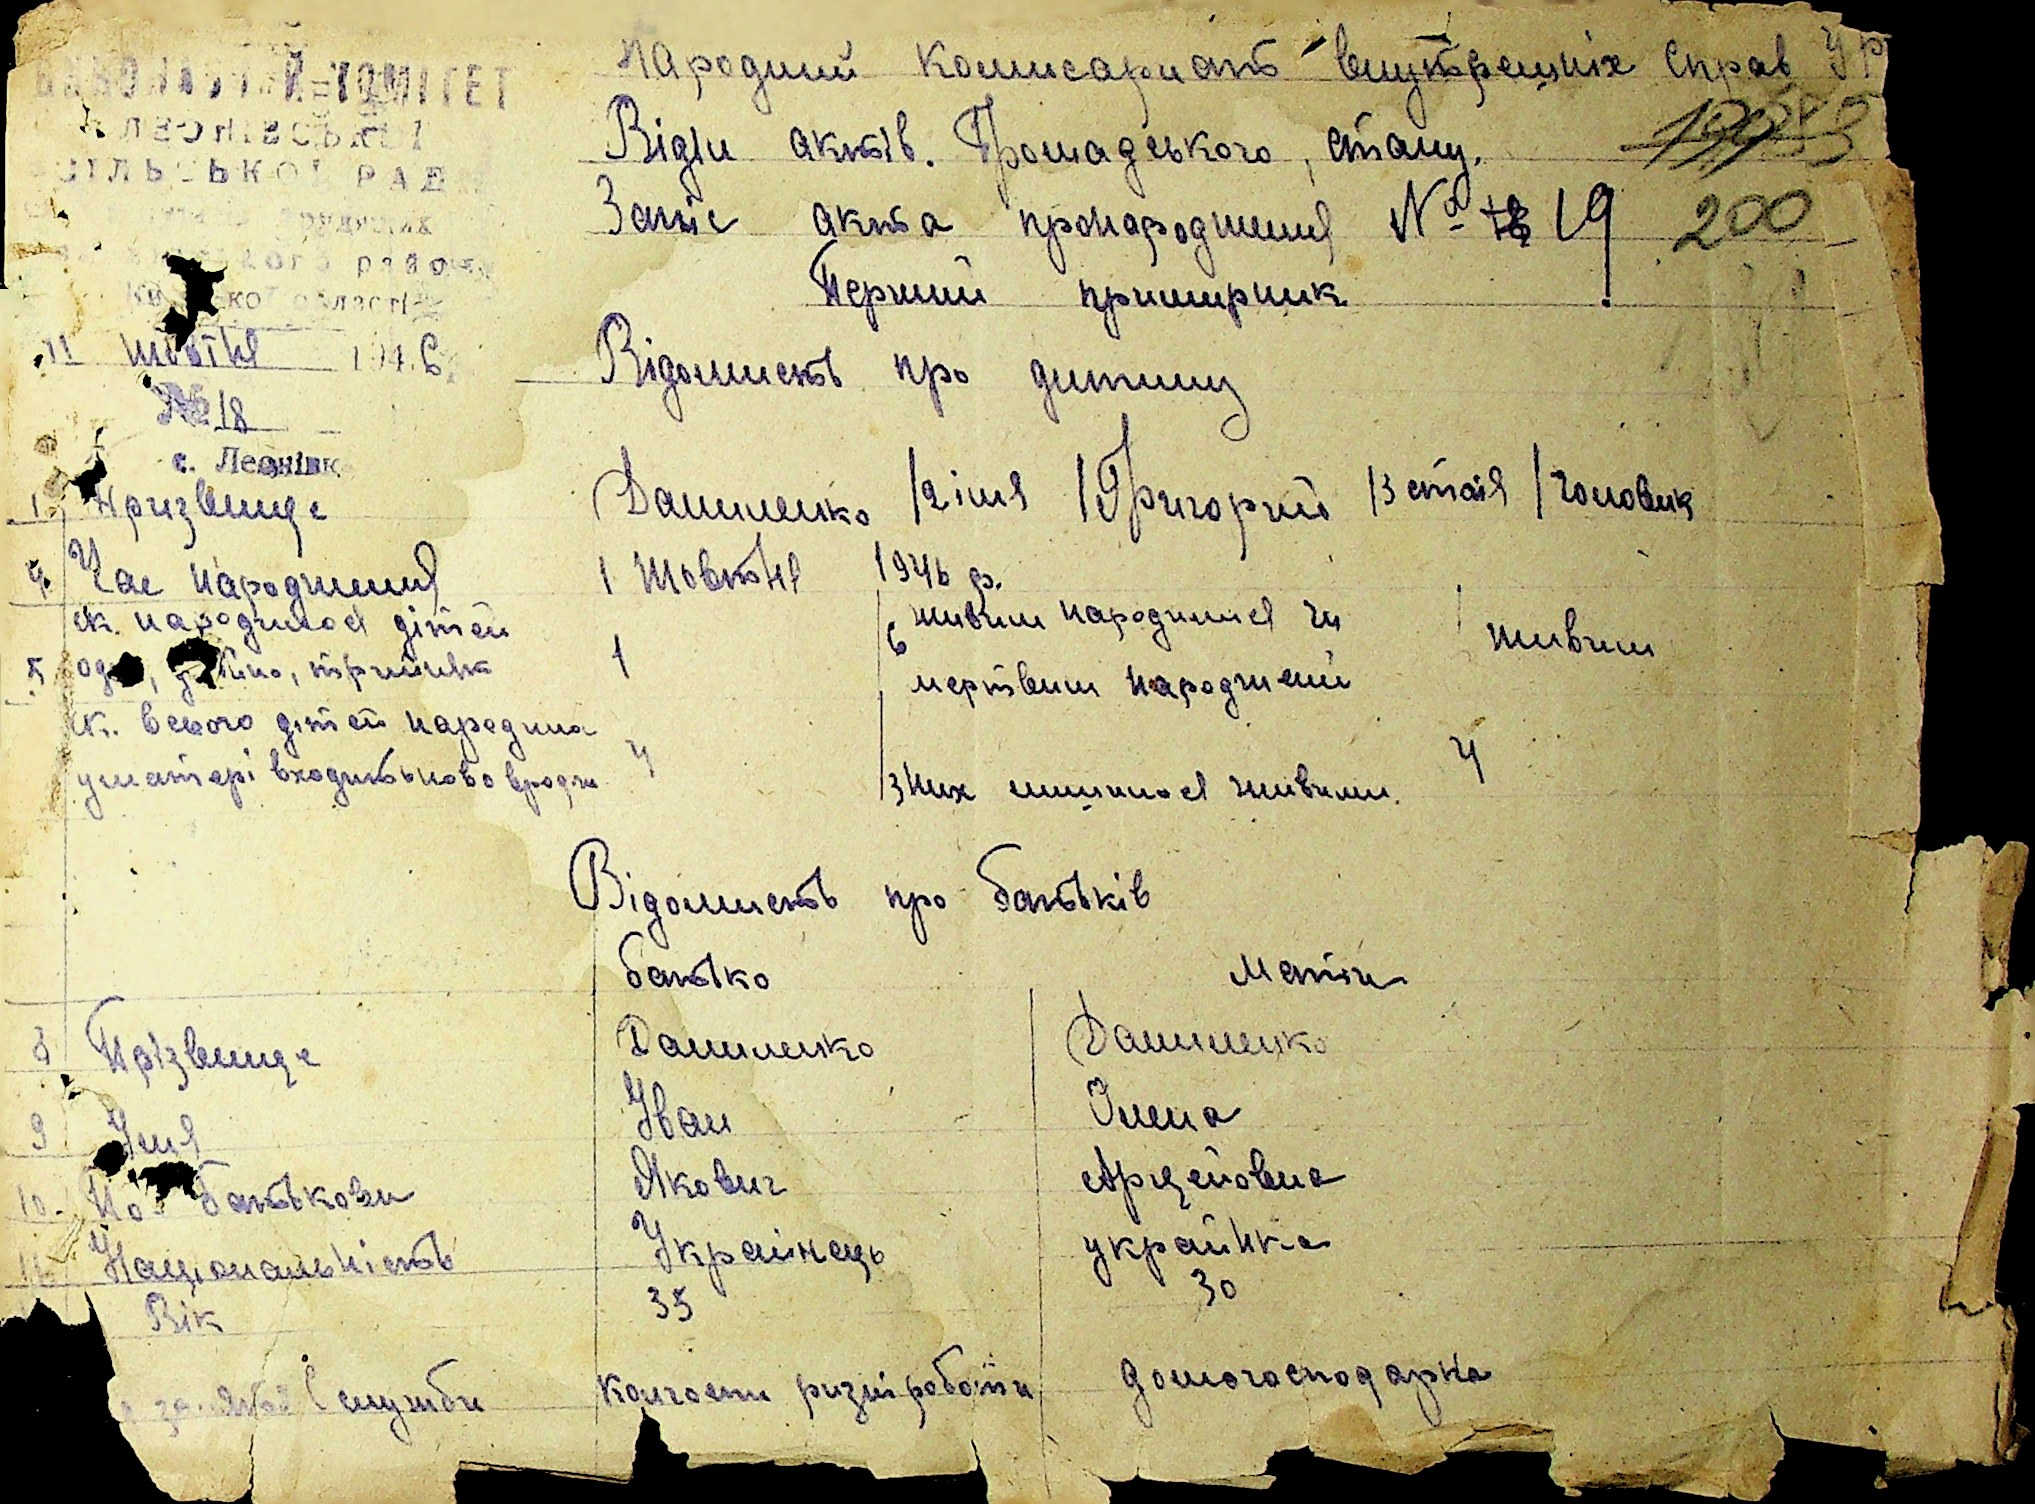 ВИКОНАВЧИЙ КОМІТЕТ
ЛЕОНІВСЬКОЇ
СІЛЬСЬКОЇ РАДИ
трудящих
ського району
Київської області
11 жовтня 194 6
№ 18
с. Леонівка
Народний комисариат внутрешніх справ УР
Відди актів. Громадського, стану.
1993
Запіс акта пронародження № 18 19
200
Перший примірник
Відомисть про дитину
1 Призвище Даниленко /2 імя / Григорий /3 стать / Чоловик
4. Час народження 1 Жовтня 1946 р.
5 ск. народилося дітей одно, двійко, трийнек 1
6 живим народився чи мертвим народжений живим
ск. всього дітей народила у матері входить ново вродж 4
з них лишилося живими. 4
Відомисть про батьків
батько Мати
8 Прізвище Даниленко Даниленко
9 Имя Иван Олена
10. По батькови Якович Арценовна
11. Национальність Украінець украйнка
Вік 35 30
занятий служби колгосп різні роботи домогосподарка